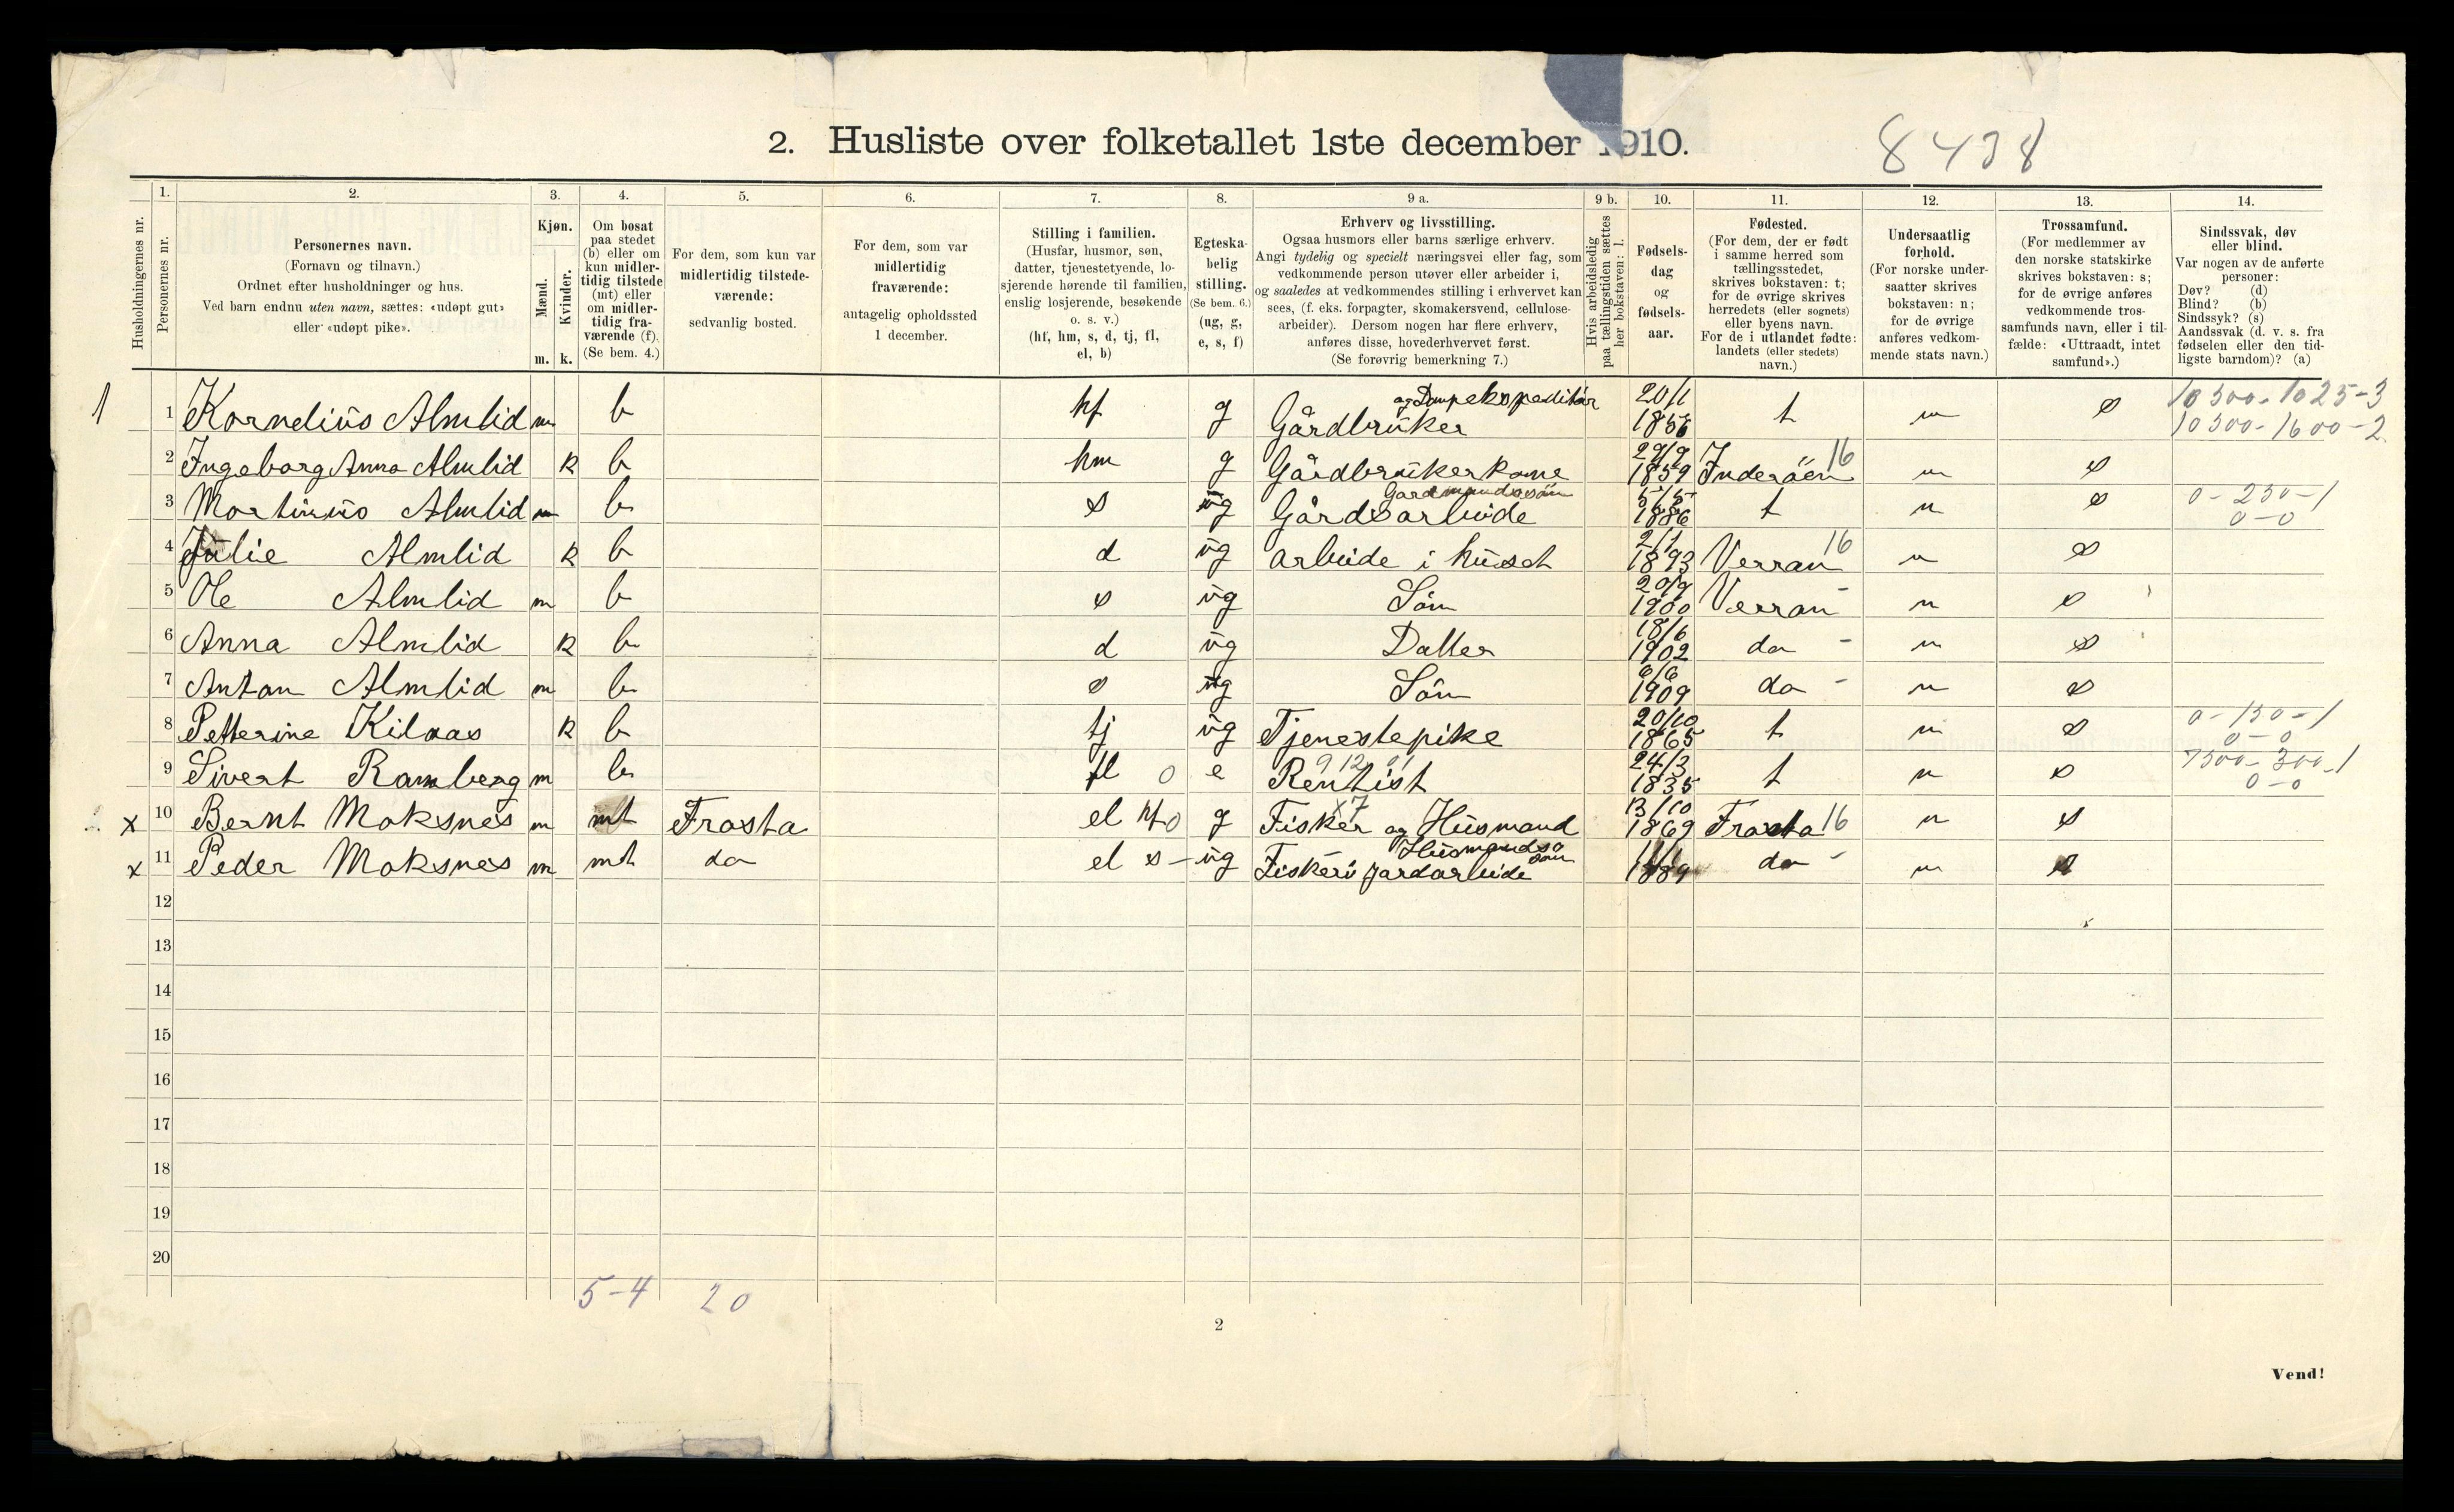 2. Husliste over folketallet 1ste december 1910.
8438
Husholdningernes nr.
1.
Personernes nr.
2.
Personernes navn.
(Fornavn og tilnavn.)
Ordnet efter husholdninger og hus.
Ved barn endnu uten navn, sættes: «udøpt gut»
eller «udøpt pike».
3.
Kjøn.
Mænd.
Kvinder.
m. k.
4.
Om bosat
paa stedet
(b) eller om
kun midler-
tidig tilstede
(mt) eller
om midler-
tidig fra-
værende (f).
(Se bem. 4.)
5.
For dem, som kun var
midlertidig tilstede-
værende:
sedvanlig bosted.
6.
For dem, som var
midlertidig
fraværende:
antagelig opholdssted
1 december.
7.
Stilling i familien.
(Husfar, husmor, søn,
datter, tjenestetyende, lo-
sjerende hørende til familien,
enslig losjerende, besøkende
o. s. v.)
(hf, hm, s, d, tj, fl,
el, b)
8.
Egteska-
belig
stilling.
(Se bem. 6.)
(ug, g,
e, s, f)
9 a.
Erhverv og livsstilling.
Ogsaa husmors eller barns særlige erhverv.
Angi tydelig og specielt næringsvei eller fag, som
vedkommende person utøver eller arbeider i,
og saaledes at vedkommendes stilling i erhvervet kan
sees, (f. eks. forpagter, skomakersvend, cellulose-
arbeider). Dersom nogen har flere erhverv,
anføres disse, hovederhvervet først.
(Se forøvrig bemerkning 7.)
9 b.
Hvis arbeidsledig
paa tællingstiden sættes
her bokstaven: l.
10.
Fødsels-
dag
og
fødsels-
aar.
11.
Fødested.
(For dem, der er født
i samme herred som
tællingsstedet,
skrives bokstaven: t;
for de øvrige skrives
herredets (eller sognets)
eller byens navn.
For de i utlandet fødte:
landets (eller stedets)
navn.)
12.
Undersaatlig
forhold.
(For norske under-
saatter skrives
bokstaven: n;
for de øvrige
anføres vedkom-
mende stats navn.)
13.
Trossamfund.
(For medlemmer av
den norske statskirke
skrives bokstaven: s;
for de øvrige anføres
vedkommende tros-
samfunds navn, eller i til-
fælde: «Uttraadt, intet
samfund».)
14.
Sindssvak, døv
eller blind.
Var nogen av de anførte
personer:
Døv? (d)
Blind? (b)
Sindssyk? (s)
Aandssvak (d. v. s. fra
fødselen eller den tid-
ligste barndom)? (a)
og Dampekspeditör 20/1 10300-1025-3
1 1 Kornelius Almlid m b hf g Gårdbruker 1856 t n s 10300-1600-2
29/9 16
2 Ingeborg Anna Almlid k b hm g Gårdbrukerkone 1859 Inderöen n s
Gardmandssön 5/5 0-250-1
3 Martinus Almlid m b s ug Gårdsarbeide 1886 t n s 0-0
2/1 16
4 Julie Almlid k b d ug arbeide i huset 1893 Verran n s
20/9
5 Ole Almlid m b s ug Sön 1900 Verran n s
18/6
6 Anna Almlid k b d ug Datter 1902 do - n s
6/6
7 Anton Almlid m b s ug Sön 1909 do - n s
20/10 0-150-1
8 Petterine Kilaas k b tj ug Tjenestepike 1865 t n s 0-0
912 01 24/3 7500-300-1
9 Sivert Ramberg m b fl 0 e Rentist 1835 t n s 0-0
x7 13/10
x 10 Bernt Moksnes m mt Frosta el hf 0 g Fisker og Husmand 1869 Frosta 16 n s
Husmandssön
x 11 Peder Moksnes m mt do el s - ug Fiskeri jordarbeide 1889 do - n s
12
13
14
15
16
17
18
19
20
5-4 20
2
Vend!